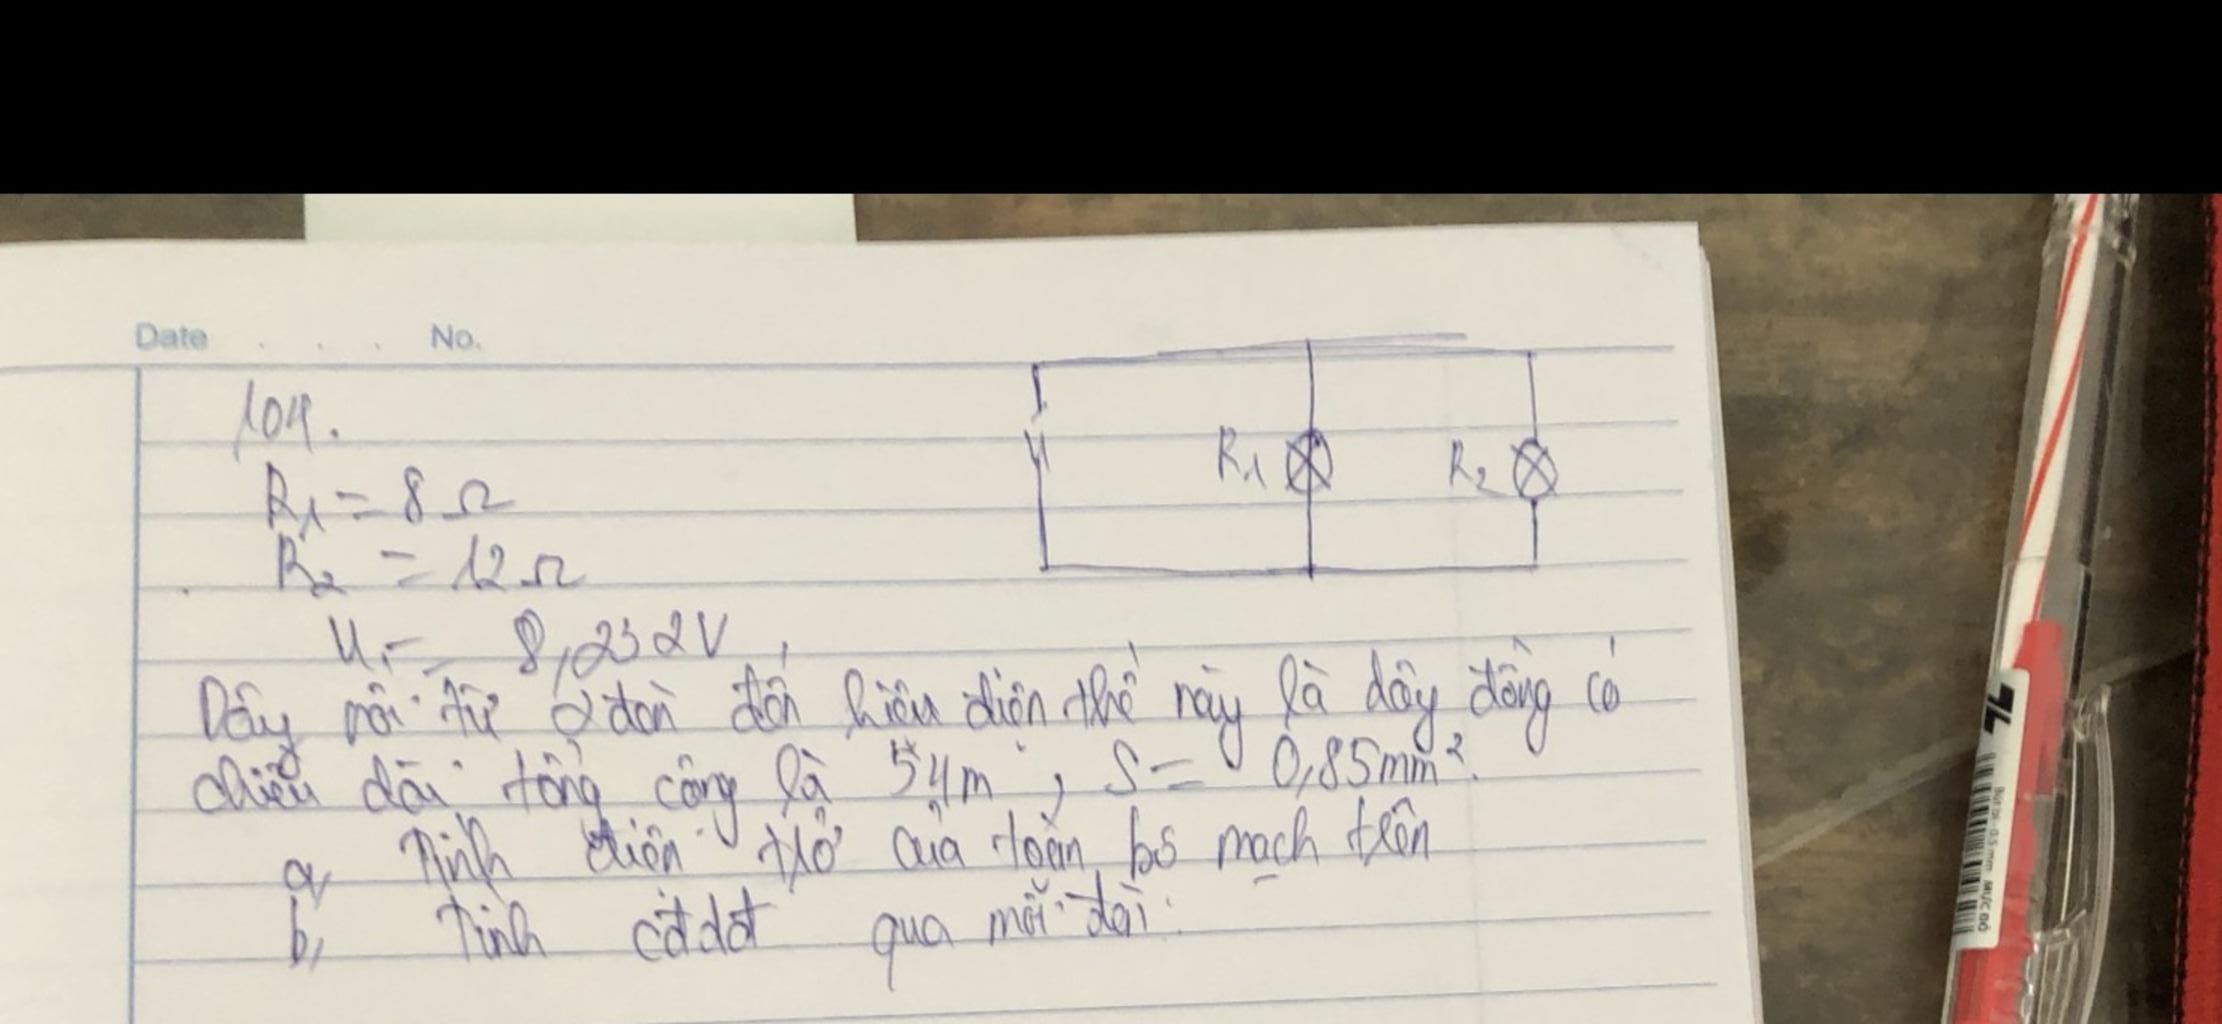 Date . . . No.
104.
R1 = 8 Ω
R1
R2
R2 = 12 Ω
U = 8,232V
Dây nối từ 2 đèn đến hiệu điện thế này là dây đồng có
chiều dài tổng cộng là 54m, S = 0,85mm².
a, Tính điện trở của toàn bộ mạch trên
b, Tính cđdđ qua mỗi